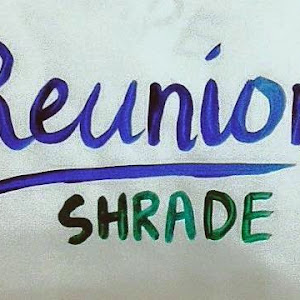 Reunion
SHRADE